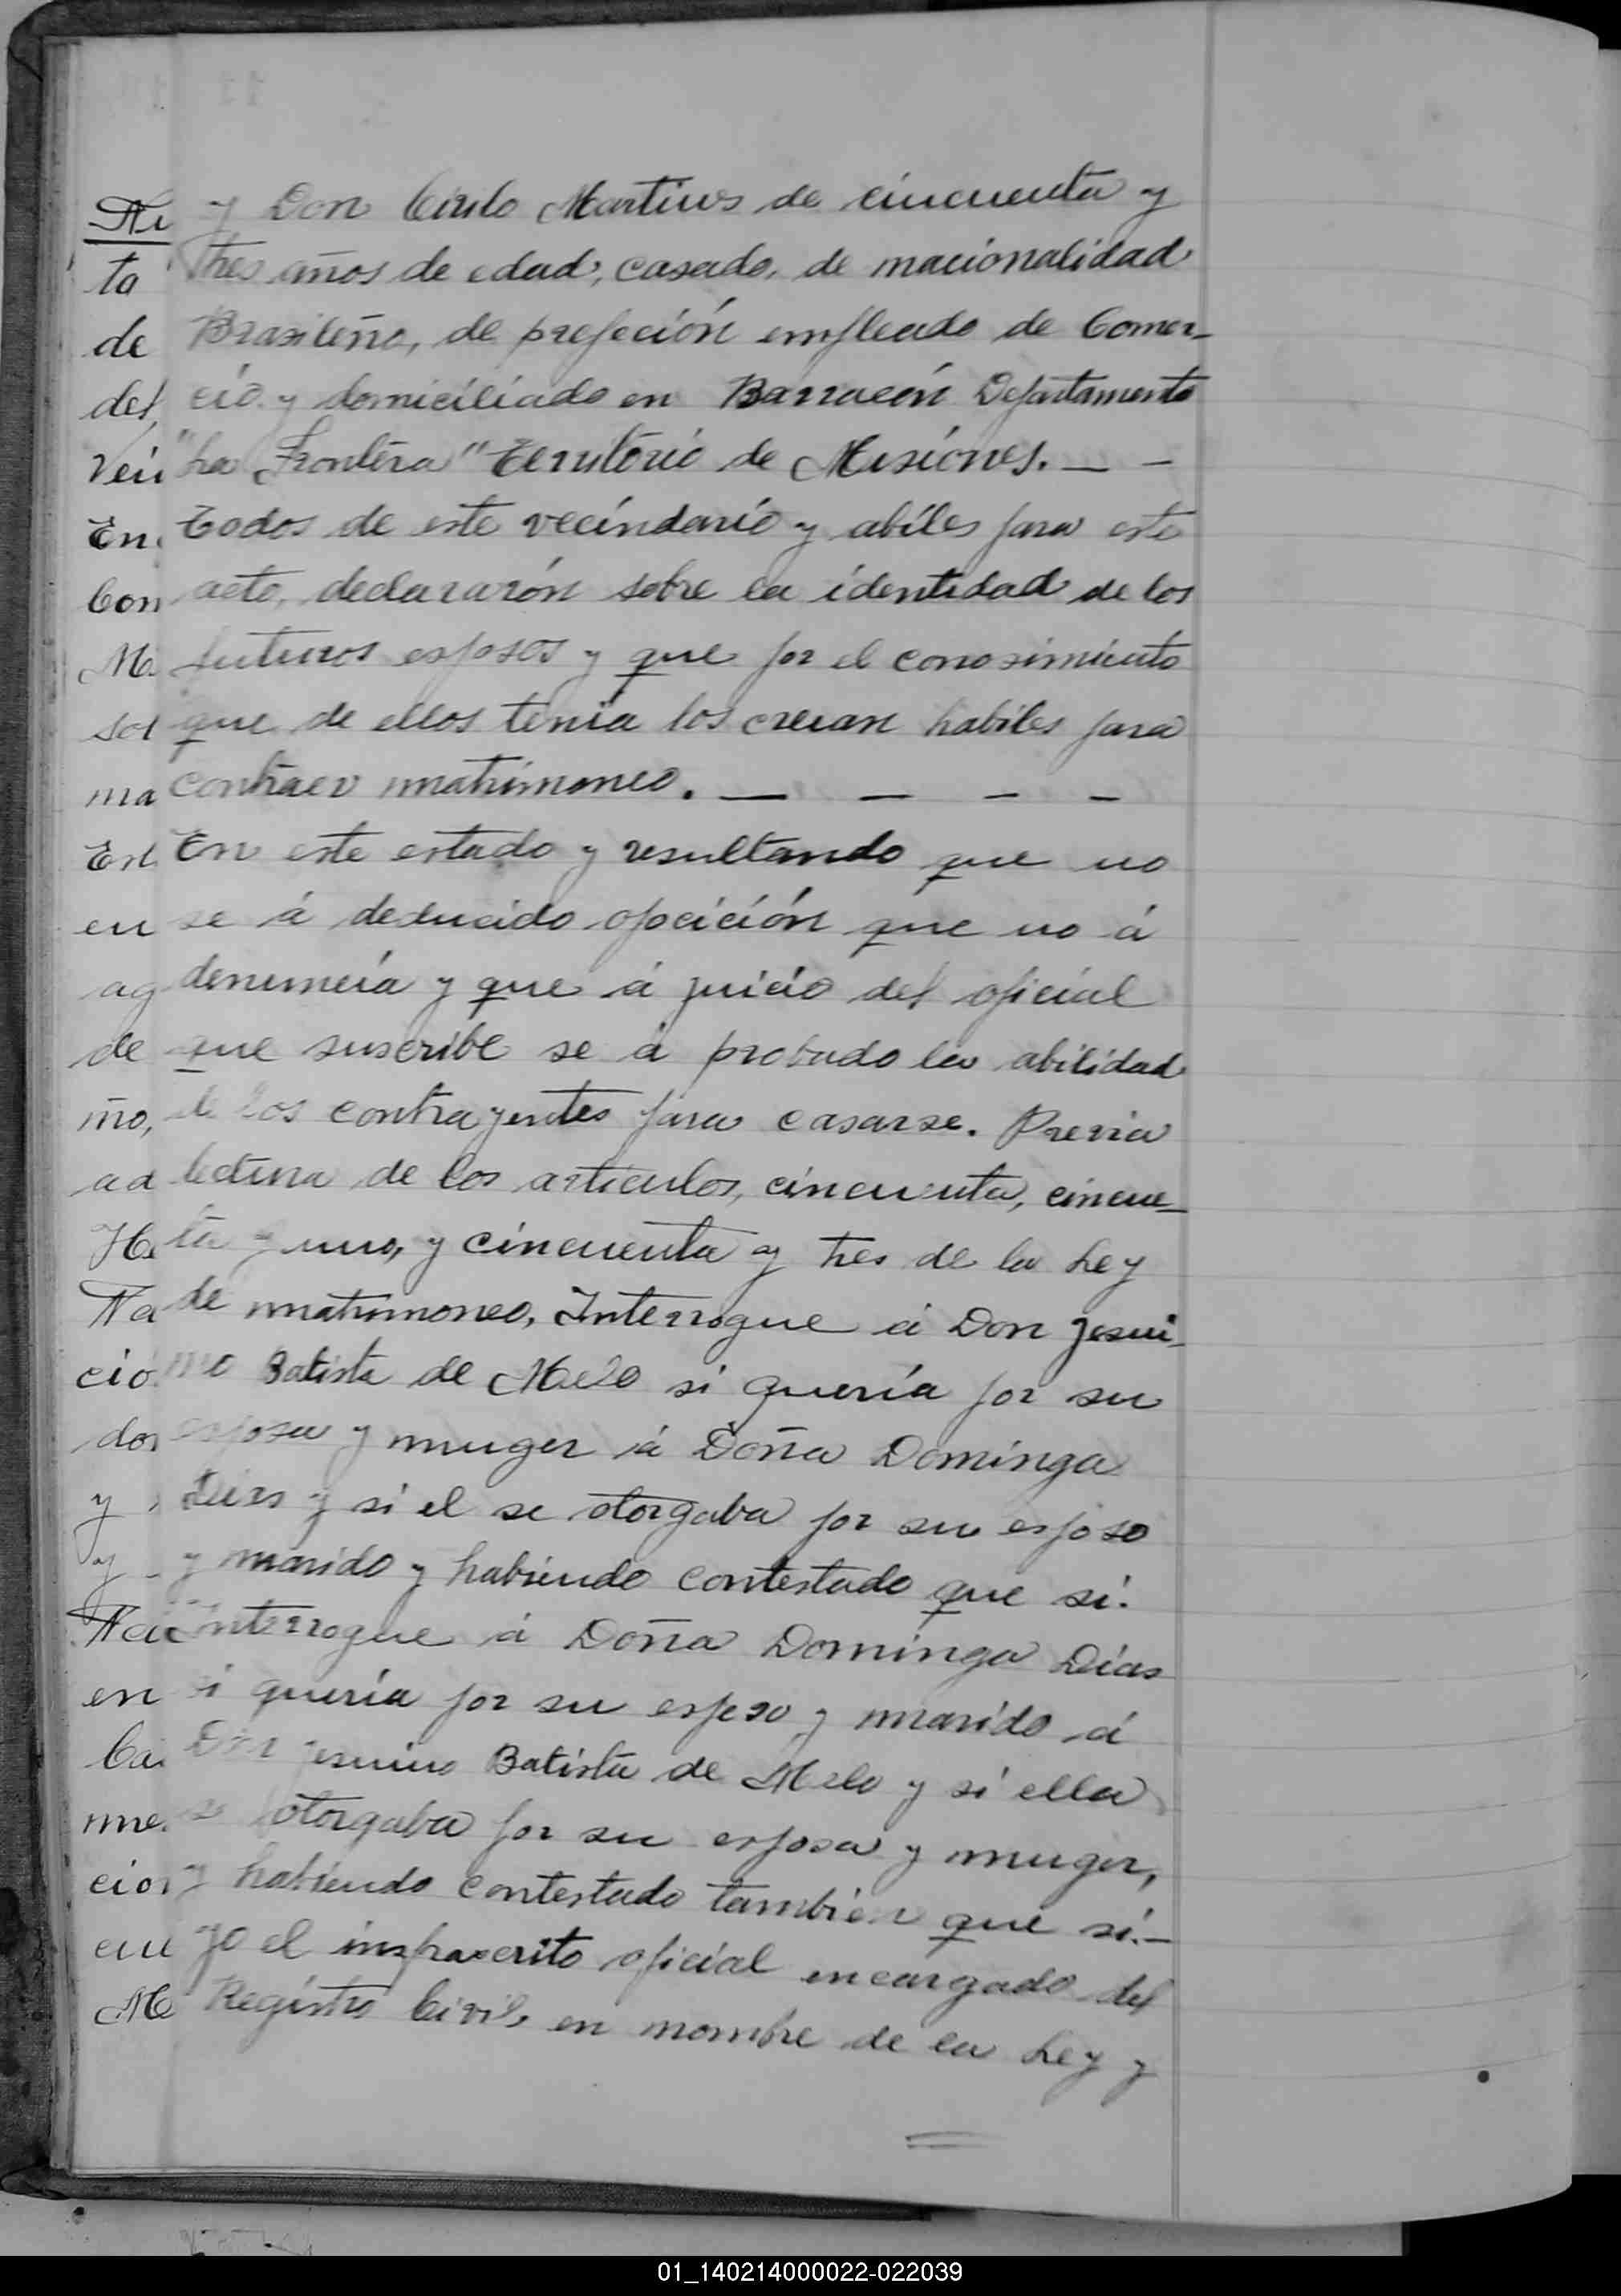 y Don Cirilo Martins de cincuenta y
Tres años de edad, casado, de nacionalidad
Brasileño, de profeción empleado de Comer-
cio y domiciliado en Barracón Departamento
"La Frontera" Territorio de Misiónes. — —
Todos de este vecindario y abiles para este
acto, declararón sobre la identidad de los
futuros esposos y que por el conosimiento
que de ellos tenia los creian habiles para
contraer matrimoneo. — — — —
En este estado y resultando que no
se á deducido opocición que no á
denuncia y que á juicio del oficial
que suscribe se á probado la abilidad
de los contrayentes para casarse. Previa
lectura de los articulos, cincuenta, cincue-
ta y uno, y cincuenta y tres de la Ley
de matrimoneo, Interrogue á Don Jesui-
no Batista de Melo si quería por su
esposa y muger á Doña Dominga
Dias y si el se otorgaba por su esposo
y marido y habiendo contestado que si.
Interrogue á Doña Dominga Días
si quería por su esposo y marido á
Don Jesuino Batista de Melo y si ella
se otorgaba por su esposa y muger,
y habiendo contestado tambien que si.—
Yo el infrascrito oficial encargado del
Registro Civil, en nombre de la Ley y
01_140214000022-022039